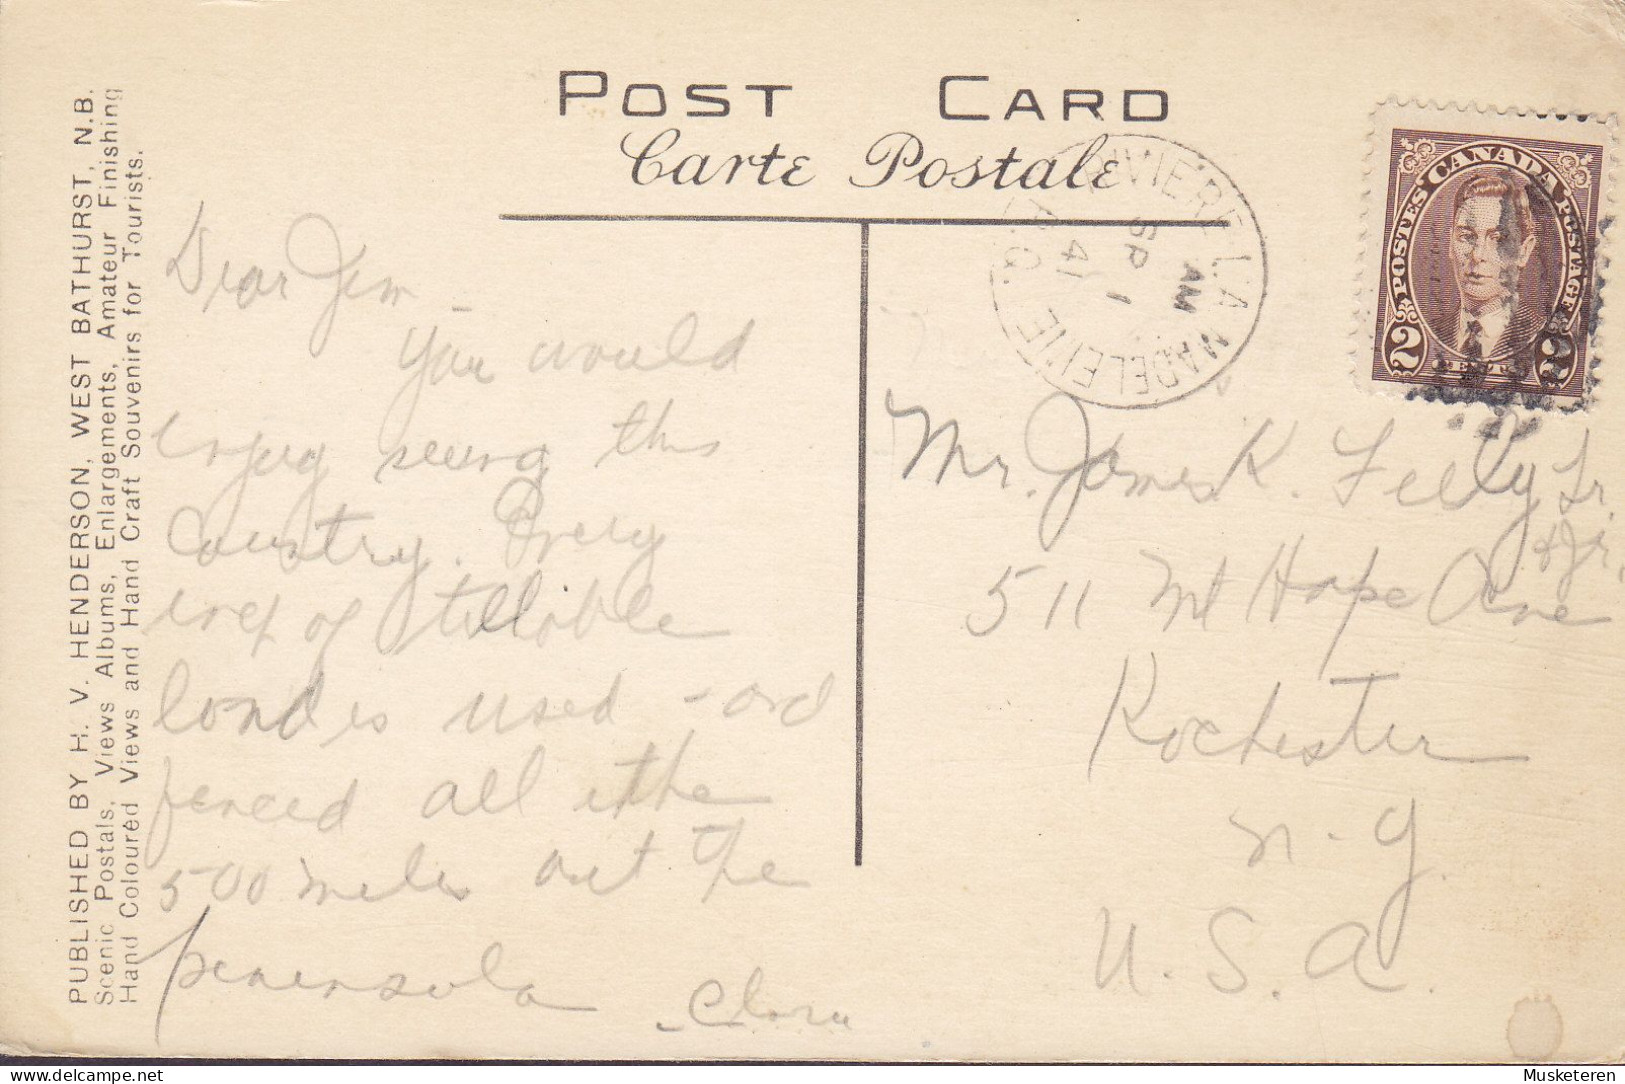 POST CARD
Carte Postale
PUBLISHED BY H. V. HENDERSON, WEST BATHURST, N.B.
Scenic Postals, Views Albums, Enlargements, Amateur Finishing
Hand Coloured Views and Hand Craft Souvenirs for Tourists.
RIVIERE LA MADELEINE
P.Q.
AM
SP 1
41
POSTES CANADA POSTAGE
2 CENTS 2
Dear Jim -
You would
enjoy seeing this
Country. Every
inch of tillable
land is used - and
fenced all the
500 miles out the
peninsula
- Clara
Mr. James K. Feely Sr.
& Jr.
511 Mt Hope Ave
Rochester
N. Y.
U. S. A.
Musketeren
delcampe.net